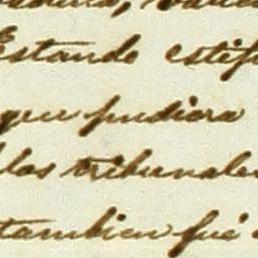 Estando
que pudiera
los tribunales
tambien fué